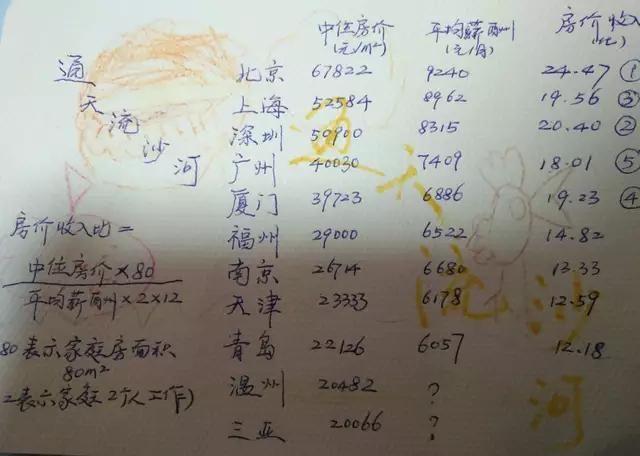 中位房价 平均薪酬 房价收入
(元/m²) (元/月) 比)
通 北京 67822 9240 24.47 ①
天 上海 52584 8962 19.56 ③
流 深圳 50900 8315 20.40 ②
沙 广州 40030 7409 18.01 ⑤
河 厦门 39723 6886 19.23 ④
福州 29000 6522 14.82
南京 26714 6680 13.33
天津 23333 6178 12.59
青岛 22126 6057 12.18
温州 20482 ?
三亚 20066 ?
房价收入比=
中位房价×80
平均薪酬×2×12
80表示家庭房面积
80m²
2表示家庭2个人工作)
通
天
流
沙
河